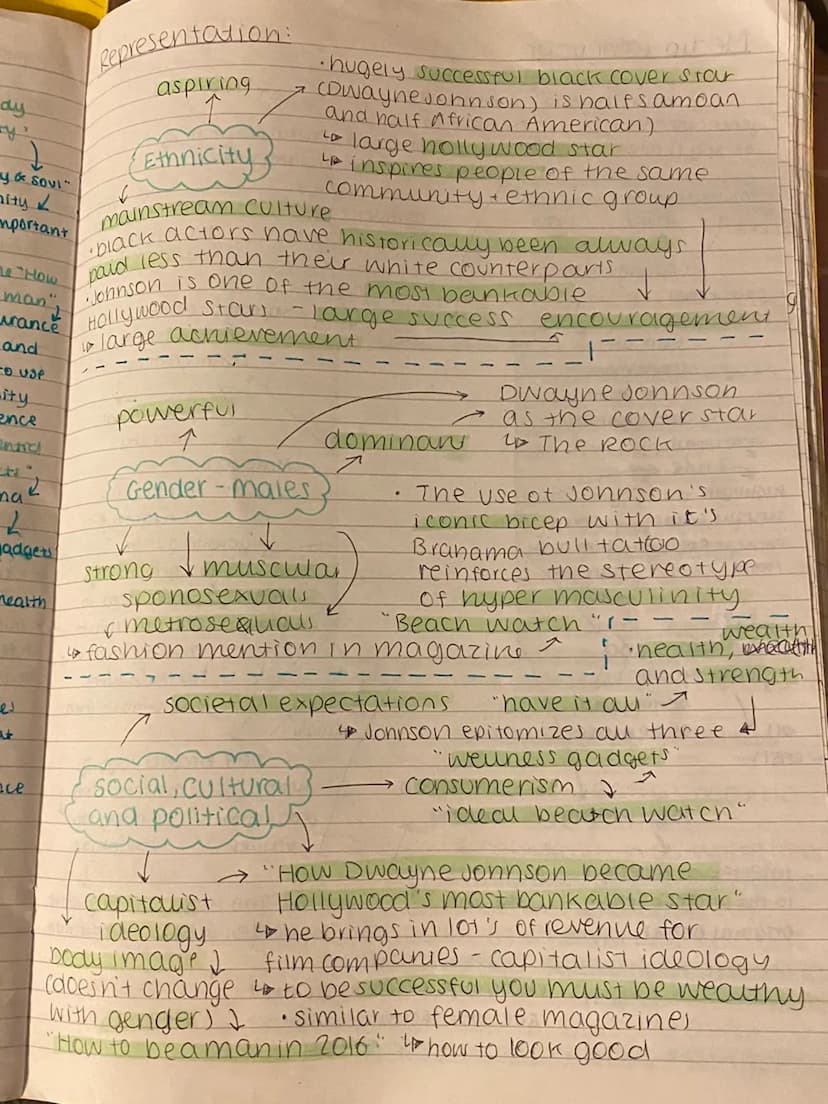 dy
ry"
y & soul"
nity
mportant
ne "How
man"
urance
and
to use
ity
ence
ma
gadgets
health
es
at
ace
Representation:
aspiring
Ethnicity
· hugely successful black cover star
(Dwayne Johnson) is half samoan
and half African American)
↳ large hollywood star
↳ inspires people of the same
community + ethnic group
mainstream culture
· black actors have historically been always
paid less than their white counterparts
· Johnson is one of the most bankable
Hollywood stars - large success encouragement
↳ large achievement
powerful
dominant
Gender - males
Dwayne Johnson
as the cover star
↳ The ROCK
strong
muscular
sponosexuals
metrosexuals
↳ fashion mention in magazine
· The use of Johnson's
iconic bicep with it's
Branama bull tattoo
reinforces the stereotype
of hyper masculinity
"Beach watch"
wealth
· health,
and strength
societal expectations "have it all"
↳ Johnson epitomizes all three
social, cultural
and political
"wellness gadgets"
consumerism
"ideal beach watch"
capitalist
ideology
body image
(doesn't change
with gender)
"How to be a man in 2016"
"How Dwayne Johnson became
Hollywood's most bankable star"
↳ he brings in lot's of revenue for
film companies - capitalist ideology
↳ to be successful you must be wealthy
· similar to female magazines
↳ how to look good